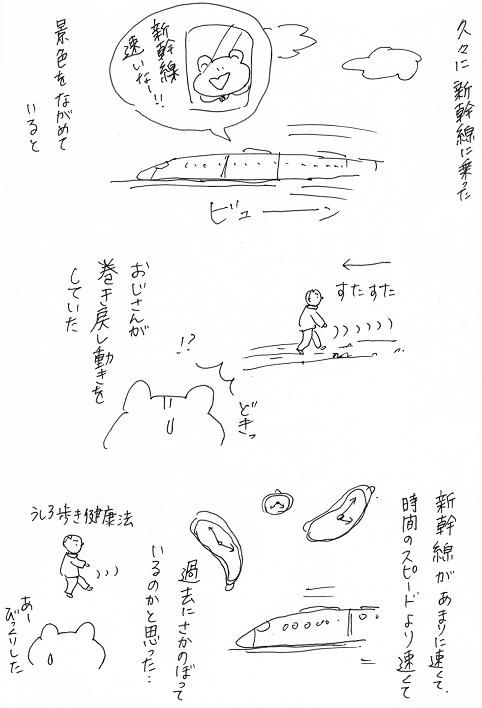 久々に新幹線に乗った
新幹線
速いなー!!
景色をながめて
いると
ビューーン
すたすた
おじさんが
巻き戻し動きを
していた
!?
どきっ
新幹線があまりに速くて、
時間のスピードより速くて
過去にさかのぼって
いるのかと思った…
うしろ歩き健康法
あー
びっくりした